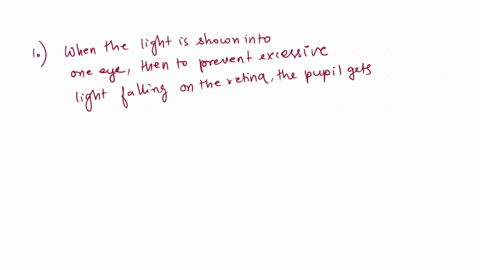 1.) When the light is shown into
one eye, then to prevent excessive
light falling on the retina, the pupil gets